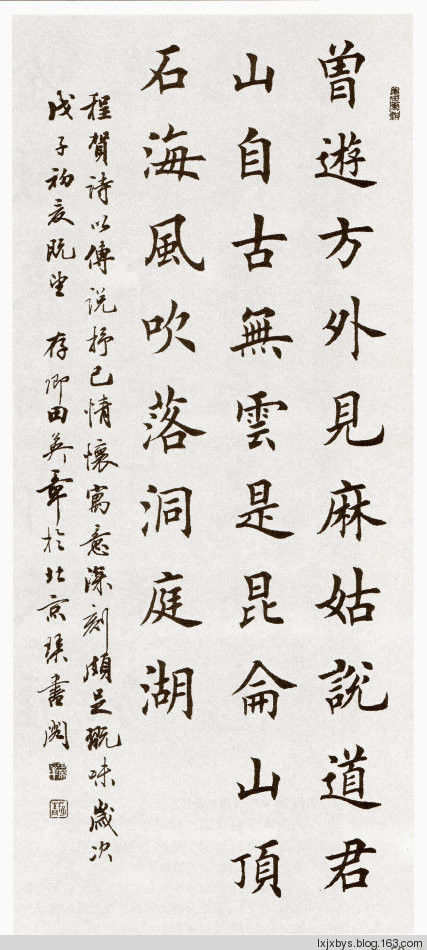 曾遊方外見麻姑說道君
山自古無雲是昆侖山頂
石海風吹落洞庭湖
程賀詩以傳說抒己情懷寓意深刻頗足玩味歲次
戊子初夏既望 存卿田英章於北京琹書閣
lxjxbys.blog.163.com